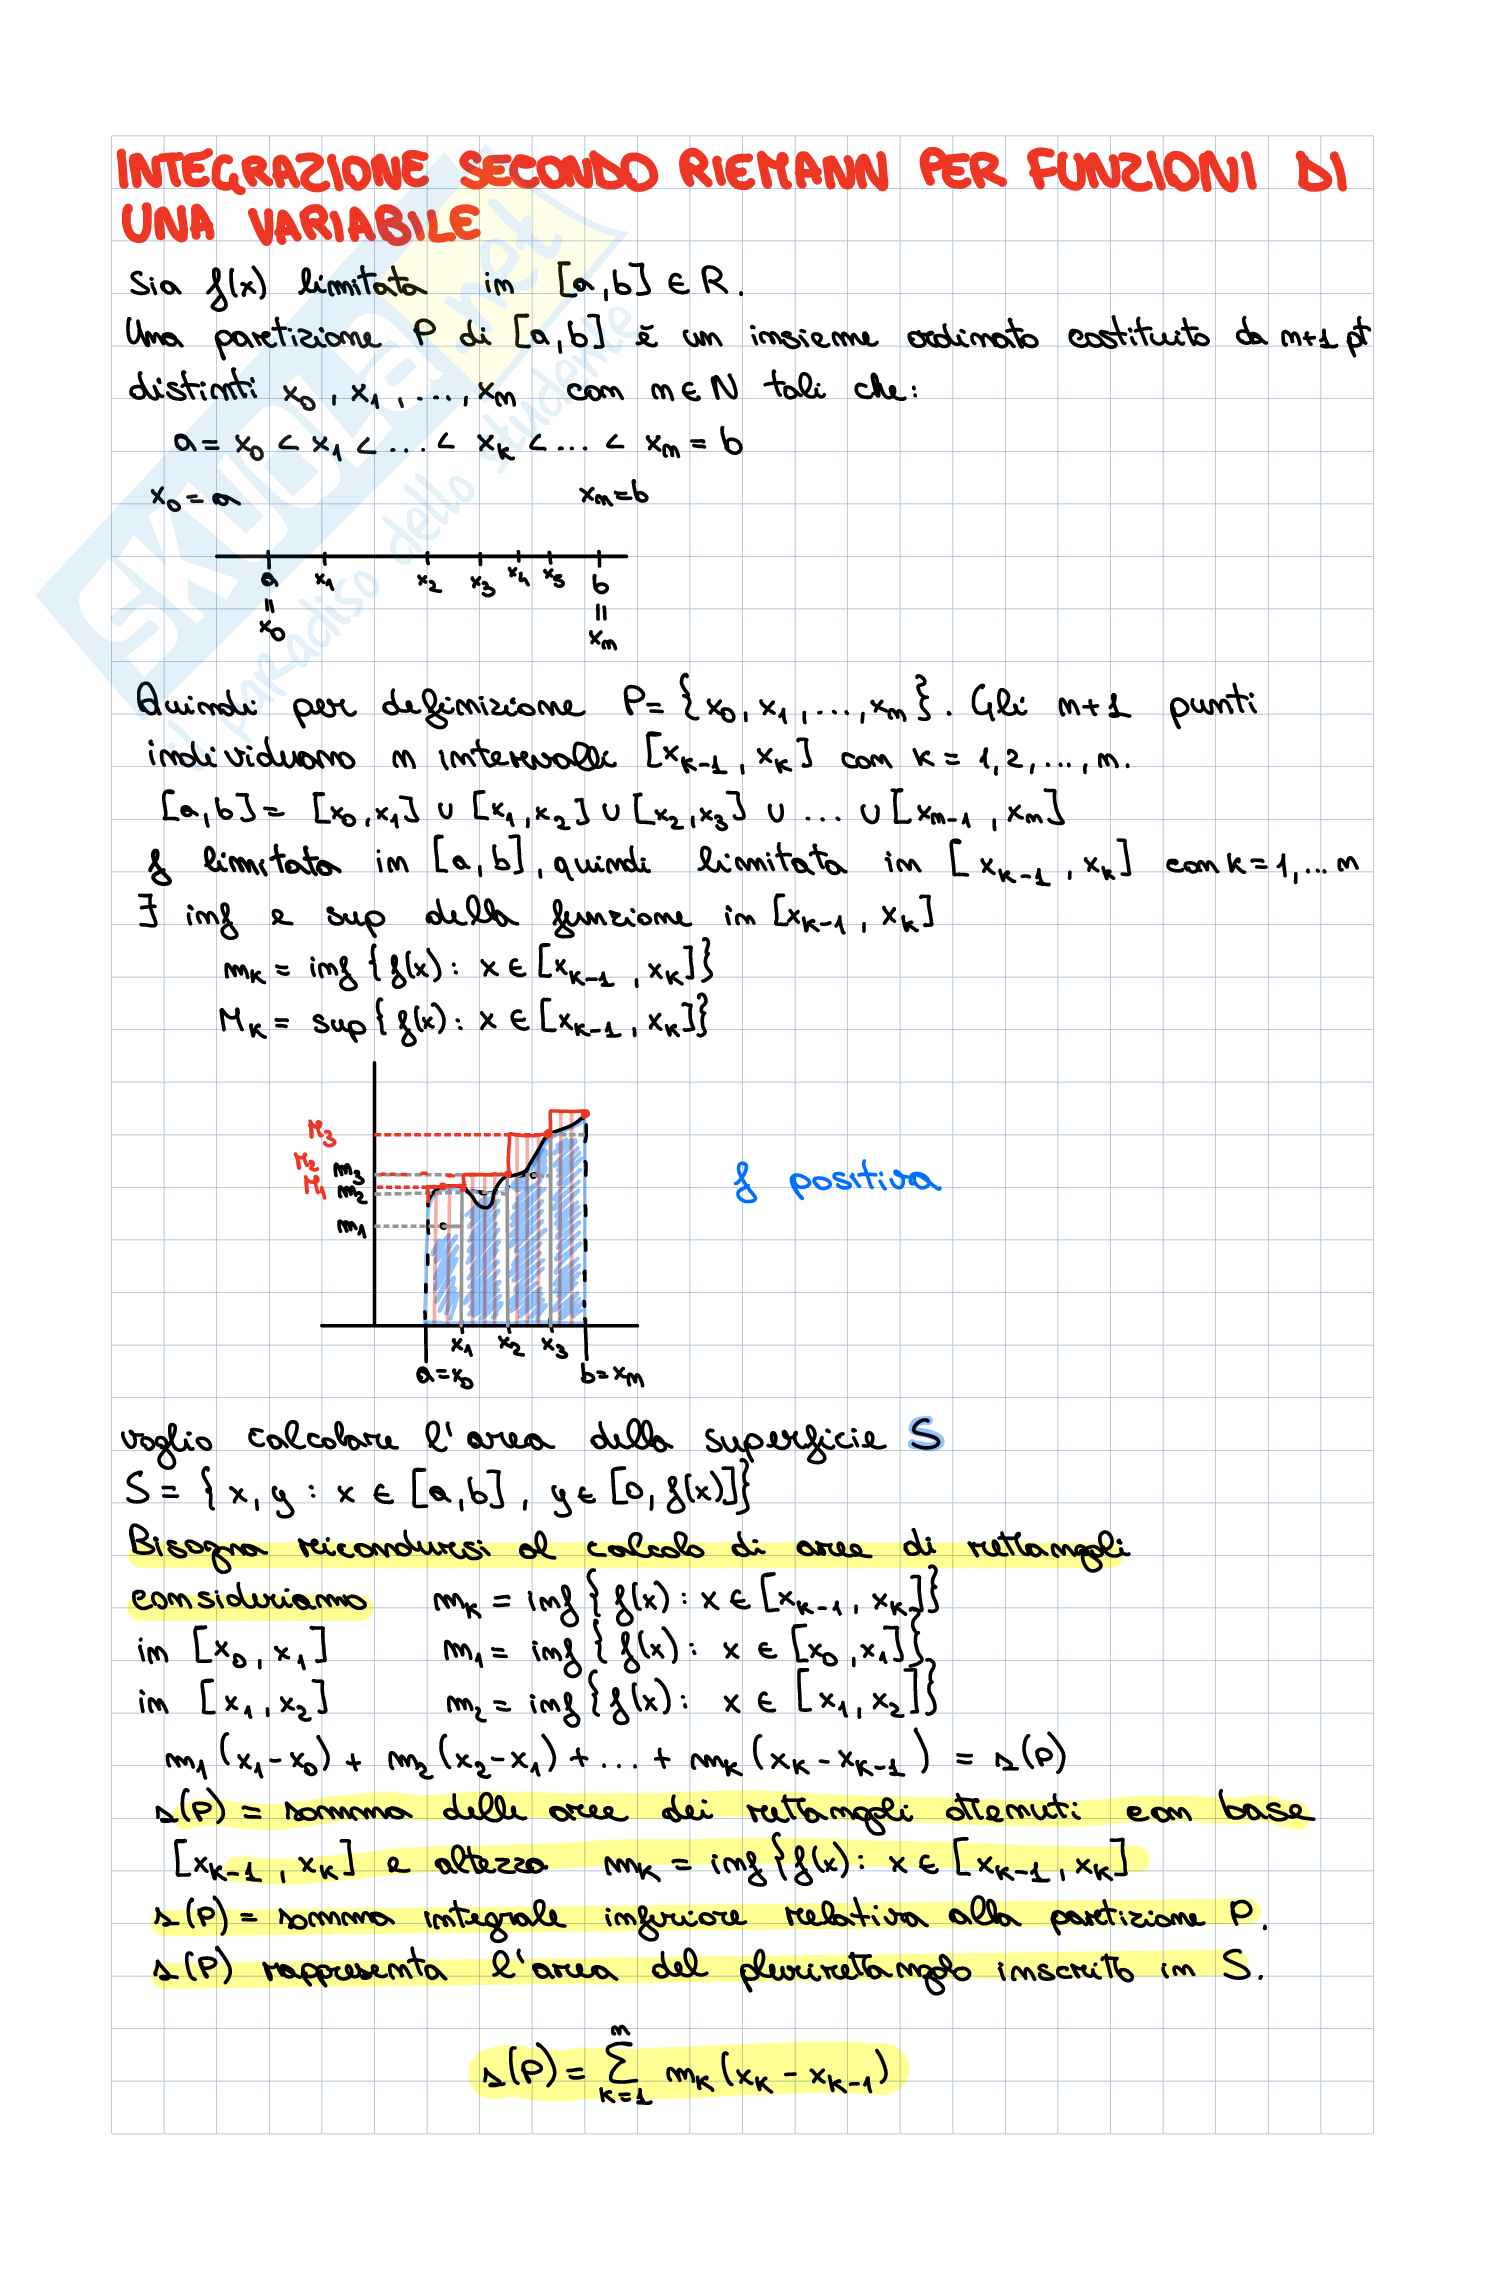 INTEGRAZIONE SECONDO RIEMANN PER FUNZIONI DI
UNA VARIABILE
Sia f(x) limitata in [a,b] ∈ R.
Una partizione P di [a,b] è un insieme ordinato costituito da n+1 pt
distinti x₀, x₁, ..., xₙ con n ∈ N tali che:
a = x₀ < x₁ < ... < xₖ < ... < xₙ = b
x₀ = a xₙ = b
a x₁ x₂ x₃ x₄ x₅ b
= =
x₀ xₙ
Quindi per definizione P = {x₀, x₁, ..., xₙ}. Gli n+1 punti
individuano n intervalli [xₖ₋₁, xₖ] con k = 1,2,...,n.
[a,b] = [x₀,x₁] ∪ [x₁,x₂] ∪ [x₂,x₃] ∪ ... ∪ [xₙ₋₁, xₙ]
f limitata in [a,b], quindi limitata in [xₖ₋₁, xₖ] con k = 1,... n
∃ inf e sup della funzione in [xₖ₋₁, xₖ]
mₖ = inf {f(x): x ∈ [xₖ₋₁, xₖ]}
Mₖ = sup {f(x): x ∈ [xₖ₋₁, xₖ]}
M₃
M₂ m₃
M₁ m₂
m₁
f positiva
x₁ x₂ x₃
a = x₀ b = xₙ
voglio calcolare l'area della superficie S
S = {x, y : x ∈ [a,b], y ∈ [0, f(x)]}
Bisogna ricondursi al calcolo di aree di rettangoli
consideriamo mₖ = inf {f(x): x ∈ [xₖ₋₁, xₖ]}
in [x₀, x₁] m₁ = inf {f(x): x ∈ [x₀, x₁]}
in [x₁, x₂] m₂ = inf {f(x): x ∈ [x₁, x₂]}
m₁(x₁-x₀) + m₂(x₂-x₁) + ... + mₖ(xₖ-xₖ₋₁) = s(P)
s(P) = somma delle aree dei rettangoli ottenuti con base
[xₖ₋₁, xₖ] e altezza mₖ = inf {f(x): x ∈ [xₖ₋₁, xₖ]
s(P) = somma integrale inferiore relativa alla partizione P.
s(P) rappresenta l'area del plurirettangolo inscritto in S.
n
s(P) = Σ mₖ(xₖ - xₖ₋₁)
k=1
SKUOLA.net
il paradiso dello studente